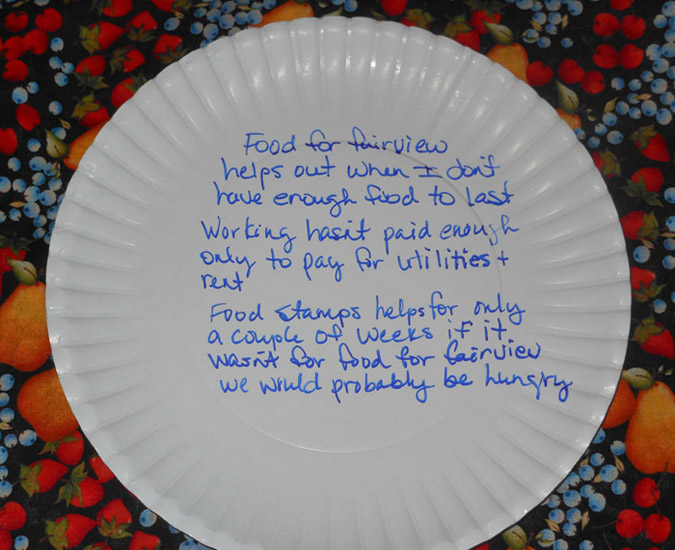 Food for fairview
helps out when I don't
have enough food to last
Working hasn't paid enough
only to pay for utilities +
rent
Food stamps helps for only
a couple of weeks if it
wasn't for food for fairview
we would probably be hungry